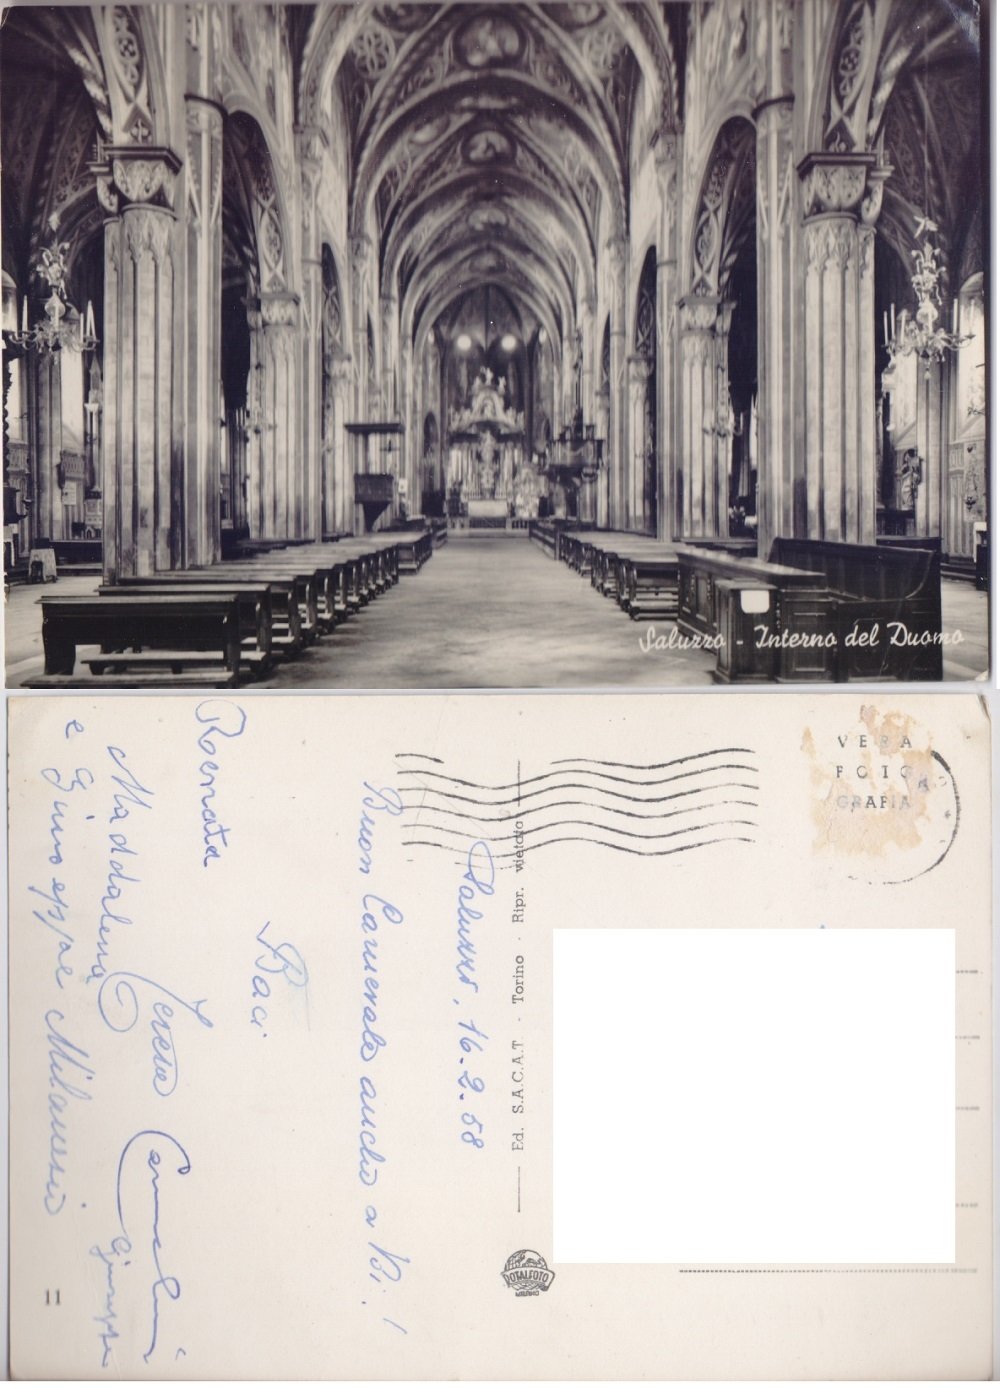 Saluzzo - Interno del Duomo
VERA
FOTO
GRAFIA
Saluzzo, 16-2-58
Buon Carnevale anche a Voi!
Baci
Renata
Teresa
Maddalena
Giuseppe
e Giuseppe Milanesio
Ed. S.A.C.A.T. - Torino - Ripr. vietata
ROTALFOTO
MILANO
11